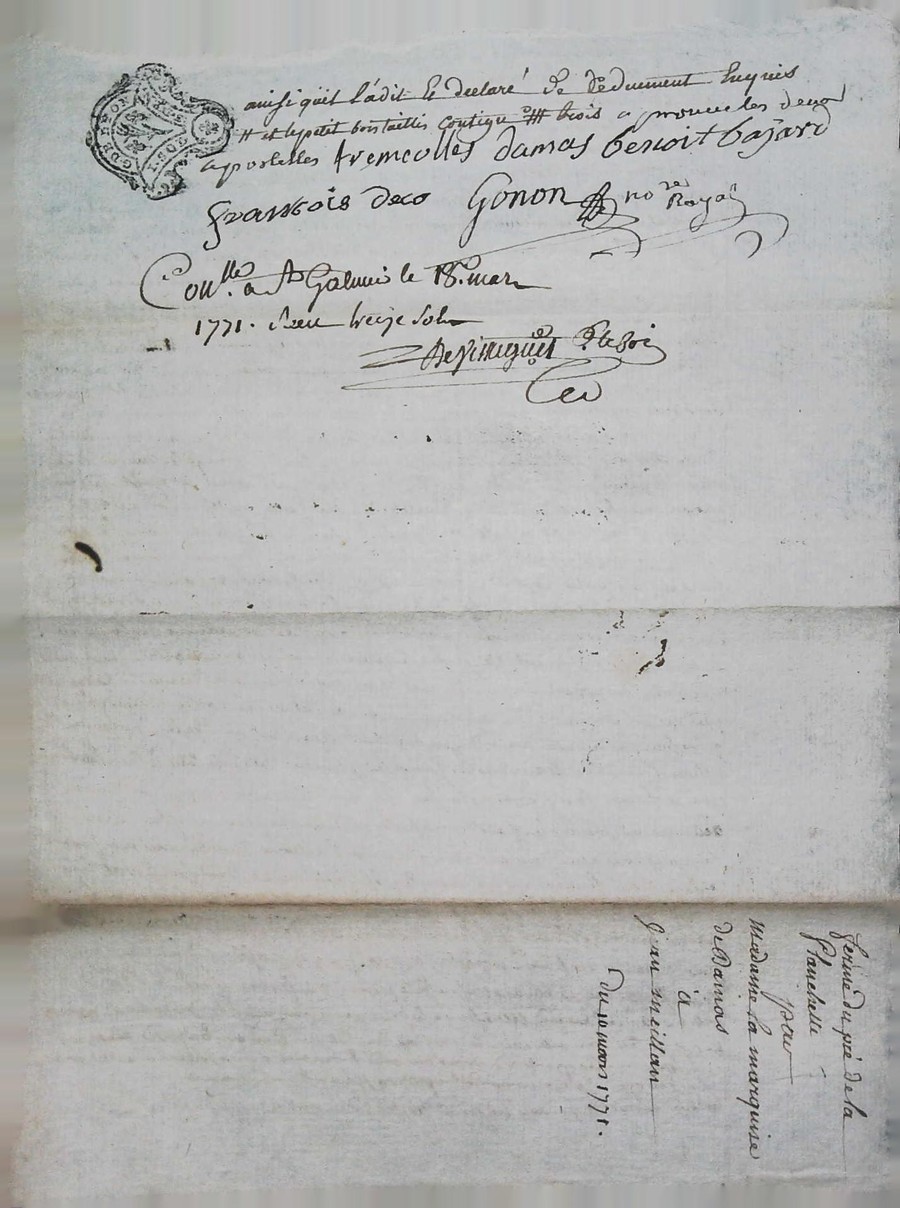 G. DE LYON
ainsi qu'il l'a dit et declaré de ce deuement enquis
# et le petit bois taillis contigu ### trois approuvé les deux
apostilles fremeolles damas benoit bajard
francois deco Gonon no.re Royal
Con.lle a St Galmier le 18. mar
1771. Receu treize sols
Ferme du pré de la
Planchette
par
Madame la marquise
de Damas
à
jean meillan
Du 10 mars 1771.